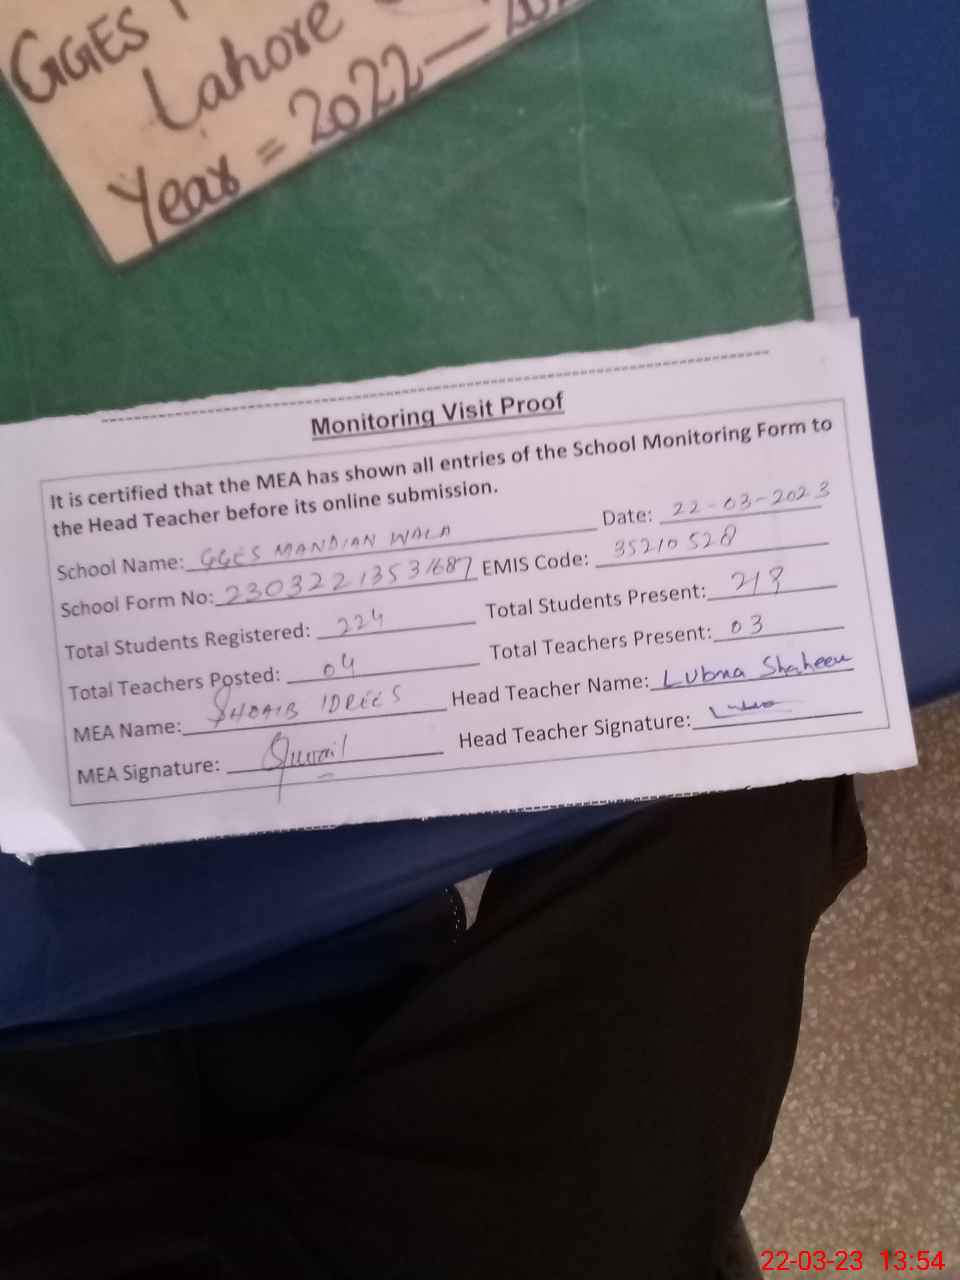 GGES
Lahore
Year = 2022 —
Monitoring Visit Proof
It is certified that the MEA has shown all entries of the School Monitoring Form to
the Head Teacher before its online submission.
School Name: GGES MANDIAN WALA Date: 22-03-2023
School Form No: 23032213531687 EMIS Code: 35210528
Total Students Registered: 224 Total Students Present:
Total Teachers Posted: 04 Total Teachers Present: 03
MEA Name: SHOAIB IDREES Head Teacher Name: Lubna Shaheen
MEA Signature: Head Teacher Signature:
22-03-23 13:54